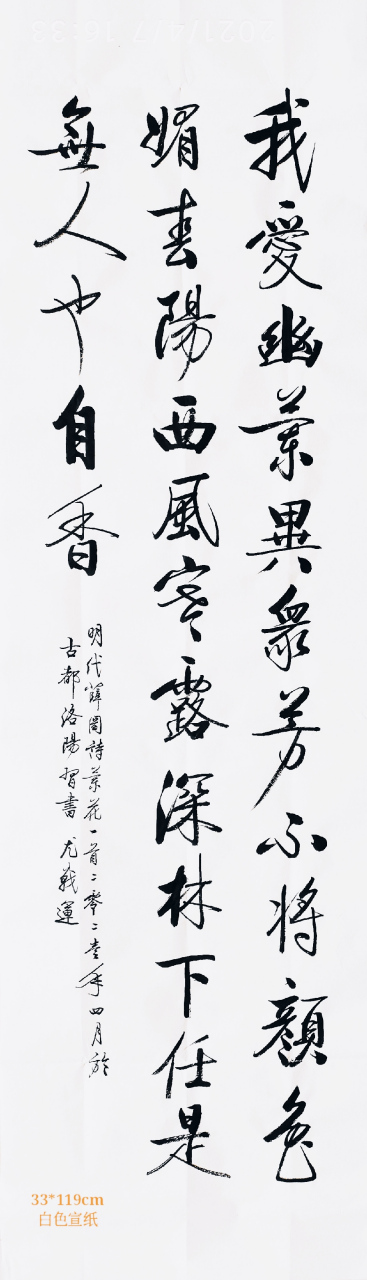 我愛幽蘭異衆芳不將顏色
媚春陽西風寒露深林下任是
無人也自香
明代薛网詩蘭花一首二零二壹年四月於
古都洛陽習書 尤戰運
33*119cm
白色宣纸